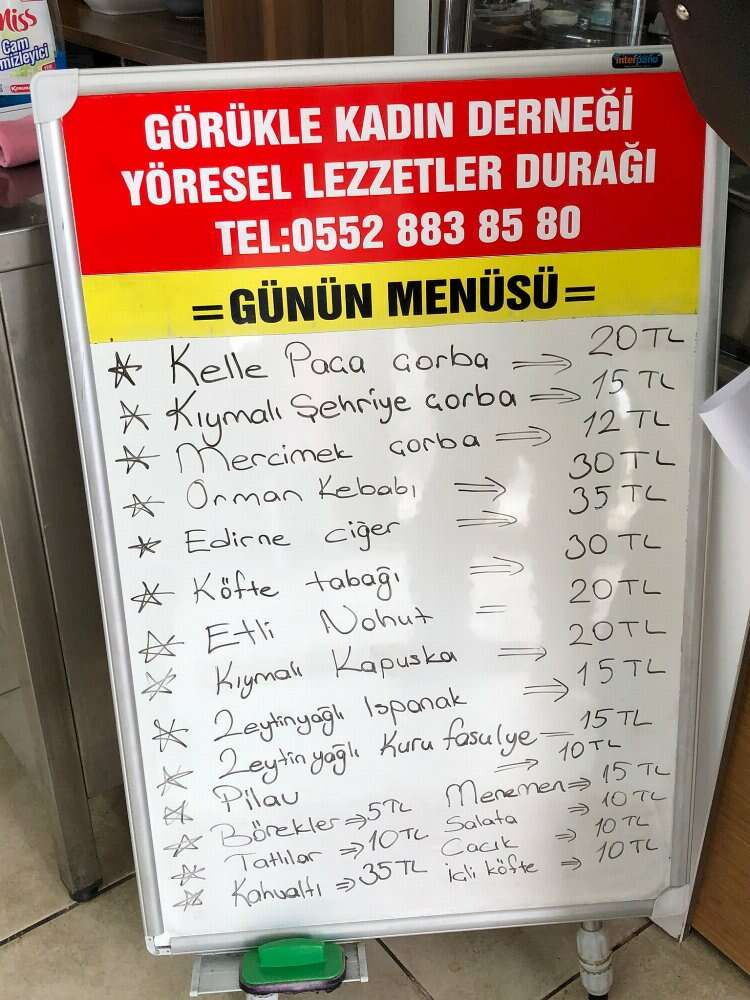 Miss
Cam
interpano
GÖRÜKLE KADIN DERNEĞİ
YÖRESEL LEZZETLER DURAĞI
TEL:0552 883 85 80
=GÜNÜN MENÜSÜ=
Kelle Paça çorba ⇒ 20 TL
Kıymalı Şehriye çorba ⇒ 15 TL
Mercimek çorba ⇒ 12 TL
Orman Kebabı ⇒ 30 TL
Edirne ciğer ⇒ 35 TL
Köfte tabağı ⇒ 30 TL
Etli Nohut = 20 TL
Kıymalı Kapuska ⇒ 20 TL
Zeytinyağlı Ispanak ⇒ 15 TL
Zeytinyağlı Kuru fasulye = 15 TL
Pilav ⇒ 10 TL
Börekler ⇒ 5 TL Menemen ⇒ 15 TL
Tatlılar ⇒ 10 TL Salata ⇒ 10 TL
Kahvaltı ⇒ 35 TL Cacık ⇒ 10 TL
İçli köfte ⇒ 10 TL